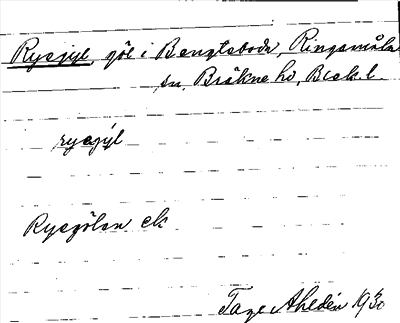 Ryegyl göl i Bengtsboda, Ringamåla
sn, Bräkne hd, Blek. l.
ryegýl
Ryegölen ek
Tage Ahldén 1930